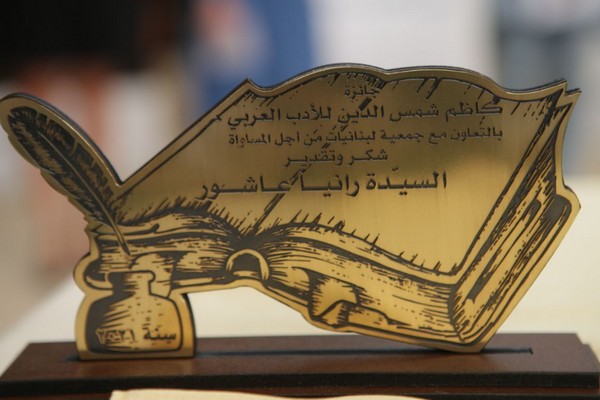 جائزة
كاظم شمس الدين للأدب العربي
بالتعاون مع جمعية لبنانيات من أجل المساواة
شكر وتقدير
السيّدة رانيا عاشور
سنة ٢٥١٨